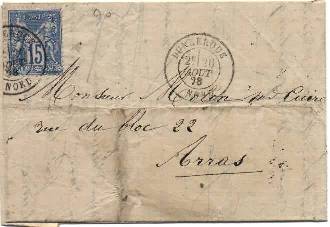 15
NORD
DUNKERQUE
2E 20
AOUT
78
NORD
Monsieur
rue du bloc 22
Arras